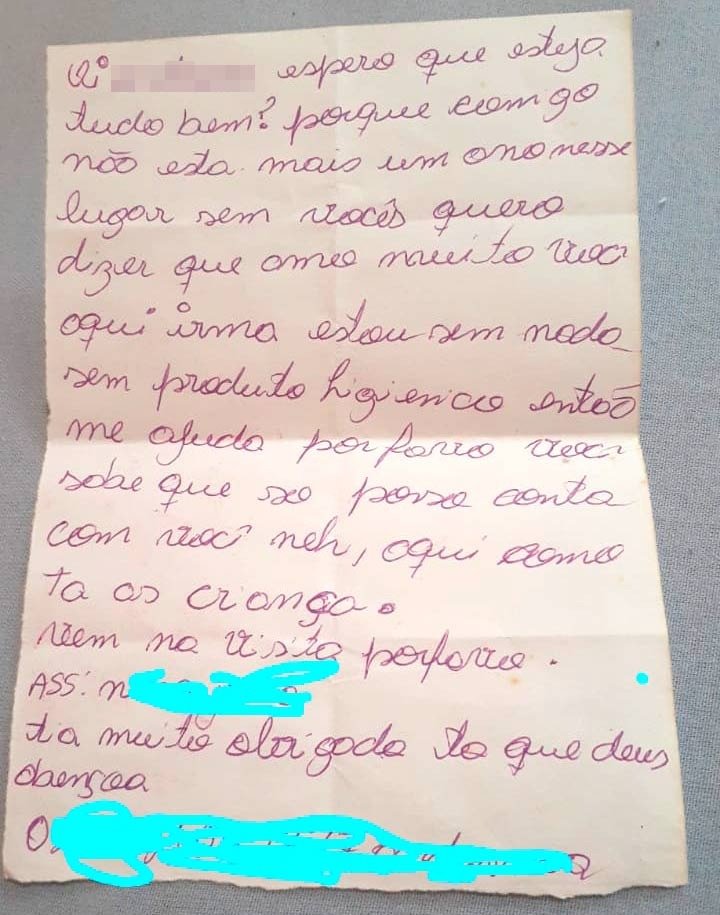 Oi espero que esteja
tudo bem? porque comgo
não esta. mais um ano nesse
lugar sem vocês quero
dizer que ameo muito voce
aqui irma estou sem nada
sem produto higienico entaõ
me ajuda porfavo voce
sabe que so posso conta
com você neh, aqui como
ta as criança.
vem na visita porfavo.
ASS:
ta muito obrigada ta que deus
abençoa